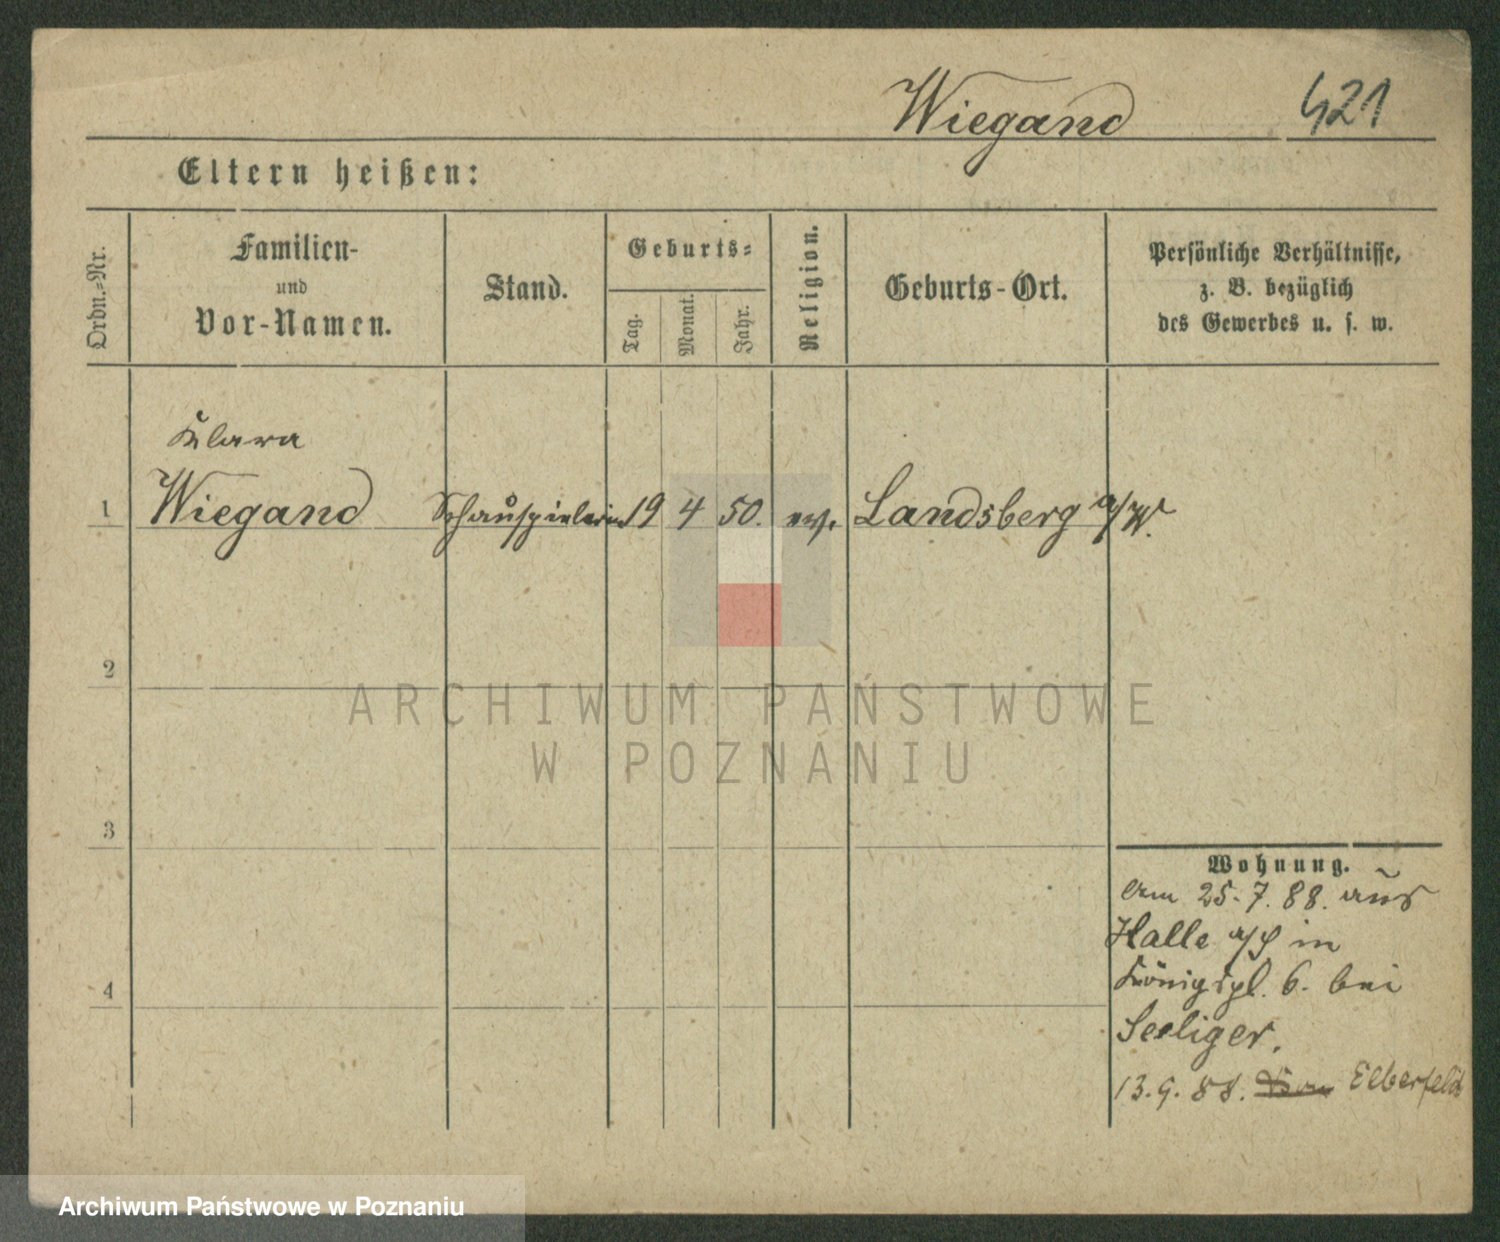 Wiegand 421
Eltern heißen:
Ordn.=Nr.
Familien-
und
Vor-Namen.
Stand.
Geburts=
Tag.
Monat.
Jahr.
Religion.
Geburts-Ort.
Persönliche Verhältnisse,
z. B. bezüglich
des Gewerbes u. s. w.
Klara
1 Wiegand Schauspielerin 19 4 50. ev. Landsberg a/W.
2
ARCHIWUM PAŃSTWOWE
W POZNANIU
3
Wohnung.
am 25.7.88. aus
Halle a/S in
Königspl. 6. bei
Seeliger.
4
13.9.88. Elberfeld
Archiwum Państwowe w Poznaniu